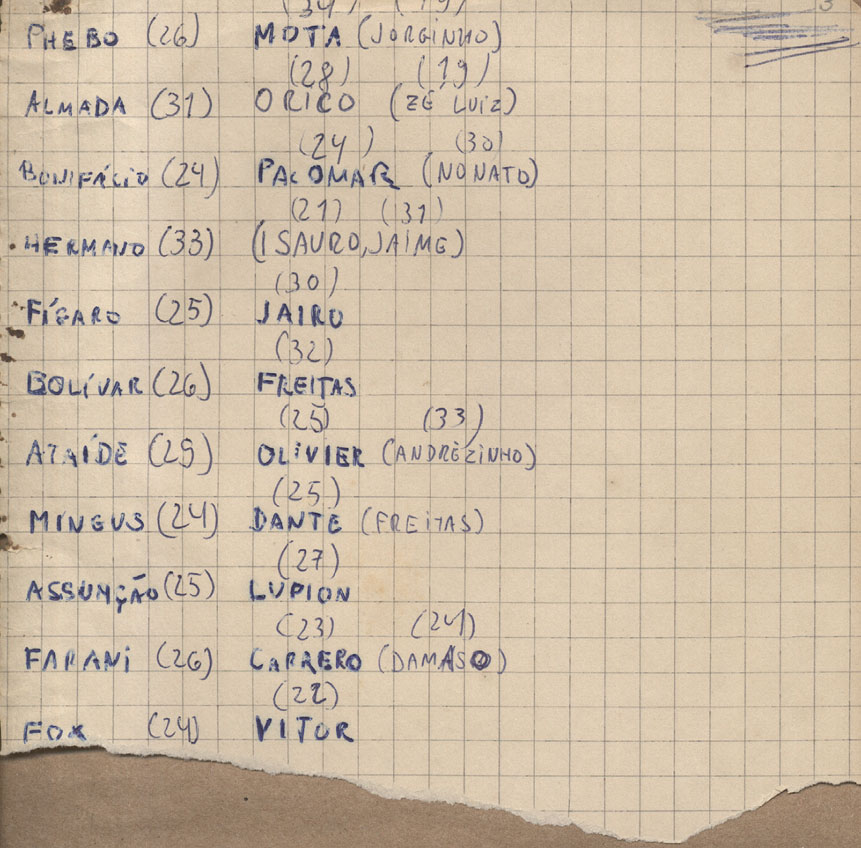 (34) (19)
PHEBO (26) MOTA (JORGINHO)
(28) (19)
ALMADA (31) ORICO (ZÉ LUIZ)
(24) (30)
BONIFÁCIO (24) PALOMAR (NONATO)
(21) (31)
HERMANO (33) (ISAURO, JAIME)
(30)
FÍGARO (25) JAIRO
(32)
BOLÍVAR (26) FREITAS
(25) (33)
ATAÍDE (25) OLIVIER (ANDRÉZINHO)
(25)
MINGUS (24) DANTE (FREITAS)
(27)
ASSUMÇÃO (25) LUPION
(23) (24)
FARANI (26) CARRERO (DAMASO)
(22)
FOX (24) VITOR